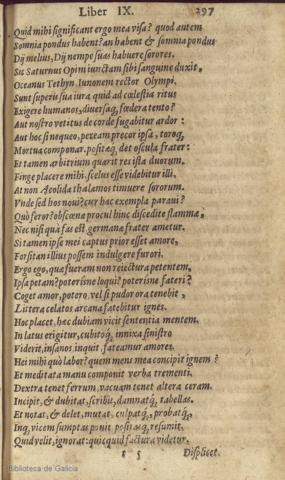 Liber IX. 297
Quid mihi significant ergo mea visa? quod autem
Somnia pondus habent? an habent & somnia pondus
Dij melius, Dij nempe suas habuere sorores.
Sic Saturnus Opim iunctam sibi sanguine duxit,
Oceanus Tethyn Iunonem rector Olympi.
Sunt superis sua iura quid ad cœlestia ritus
Exigere humanos, diuersaq, fœdera tento?
Aut nostro vetitus de corde fugabitur ardor:
Aut hoc si nequeo, peream precor ipsa, toroq,
Mortua componar. positæq, det oscula frater:
Et tamen arbitrium quærit res ista duorum.
Finge placere mihi. scelus esse videbitur illi.
At non Aeolidæ thalamos timuere sororum.
Vnde sed hos noui? cur hæc exempla paraui?
Quò feror? obscœnæ procul hinc discedite flammæ,
Nec nisi quà fas est germanæ frater ametur.
Si tamen ipse mei captus prior esset amore,
Forsitan illius possem indulgere furori.
Ergo ego, quæ fueram non reiectura petentem,
Ipsa petam? poterisne loqui? poterisne fateri?
Coget amor, potero, vel si pudor ora tenebit,
Littera celatos arcana fatebitur ignes.
Hoc placet, hæc dubiam vicit sententia mentem.
In latus erigitur, cubitoq, innixa sinistro
Viderit, insanos inquit, fateamur amores.
Hei mihi quò labor? quem mens mea concipit ignem?
Et meditata manu componit verba trementi.
Dextra tenet ferrum, vacuam tenet altera ceram.
Incipit, & dubitat, scribit, damnatq, tabellas.
Et notat, & delet, mutat, culpatq, probatq,
Inq, vicem sumptas ponit, positasq, resumit.
Quid velit, ignorat: quicquid factura videtur.
Displicet.
Biblioteca de Galicia